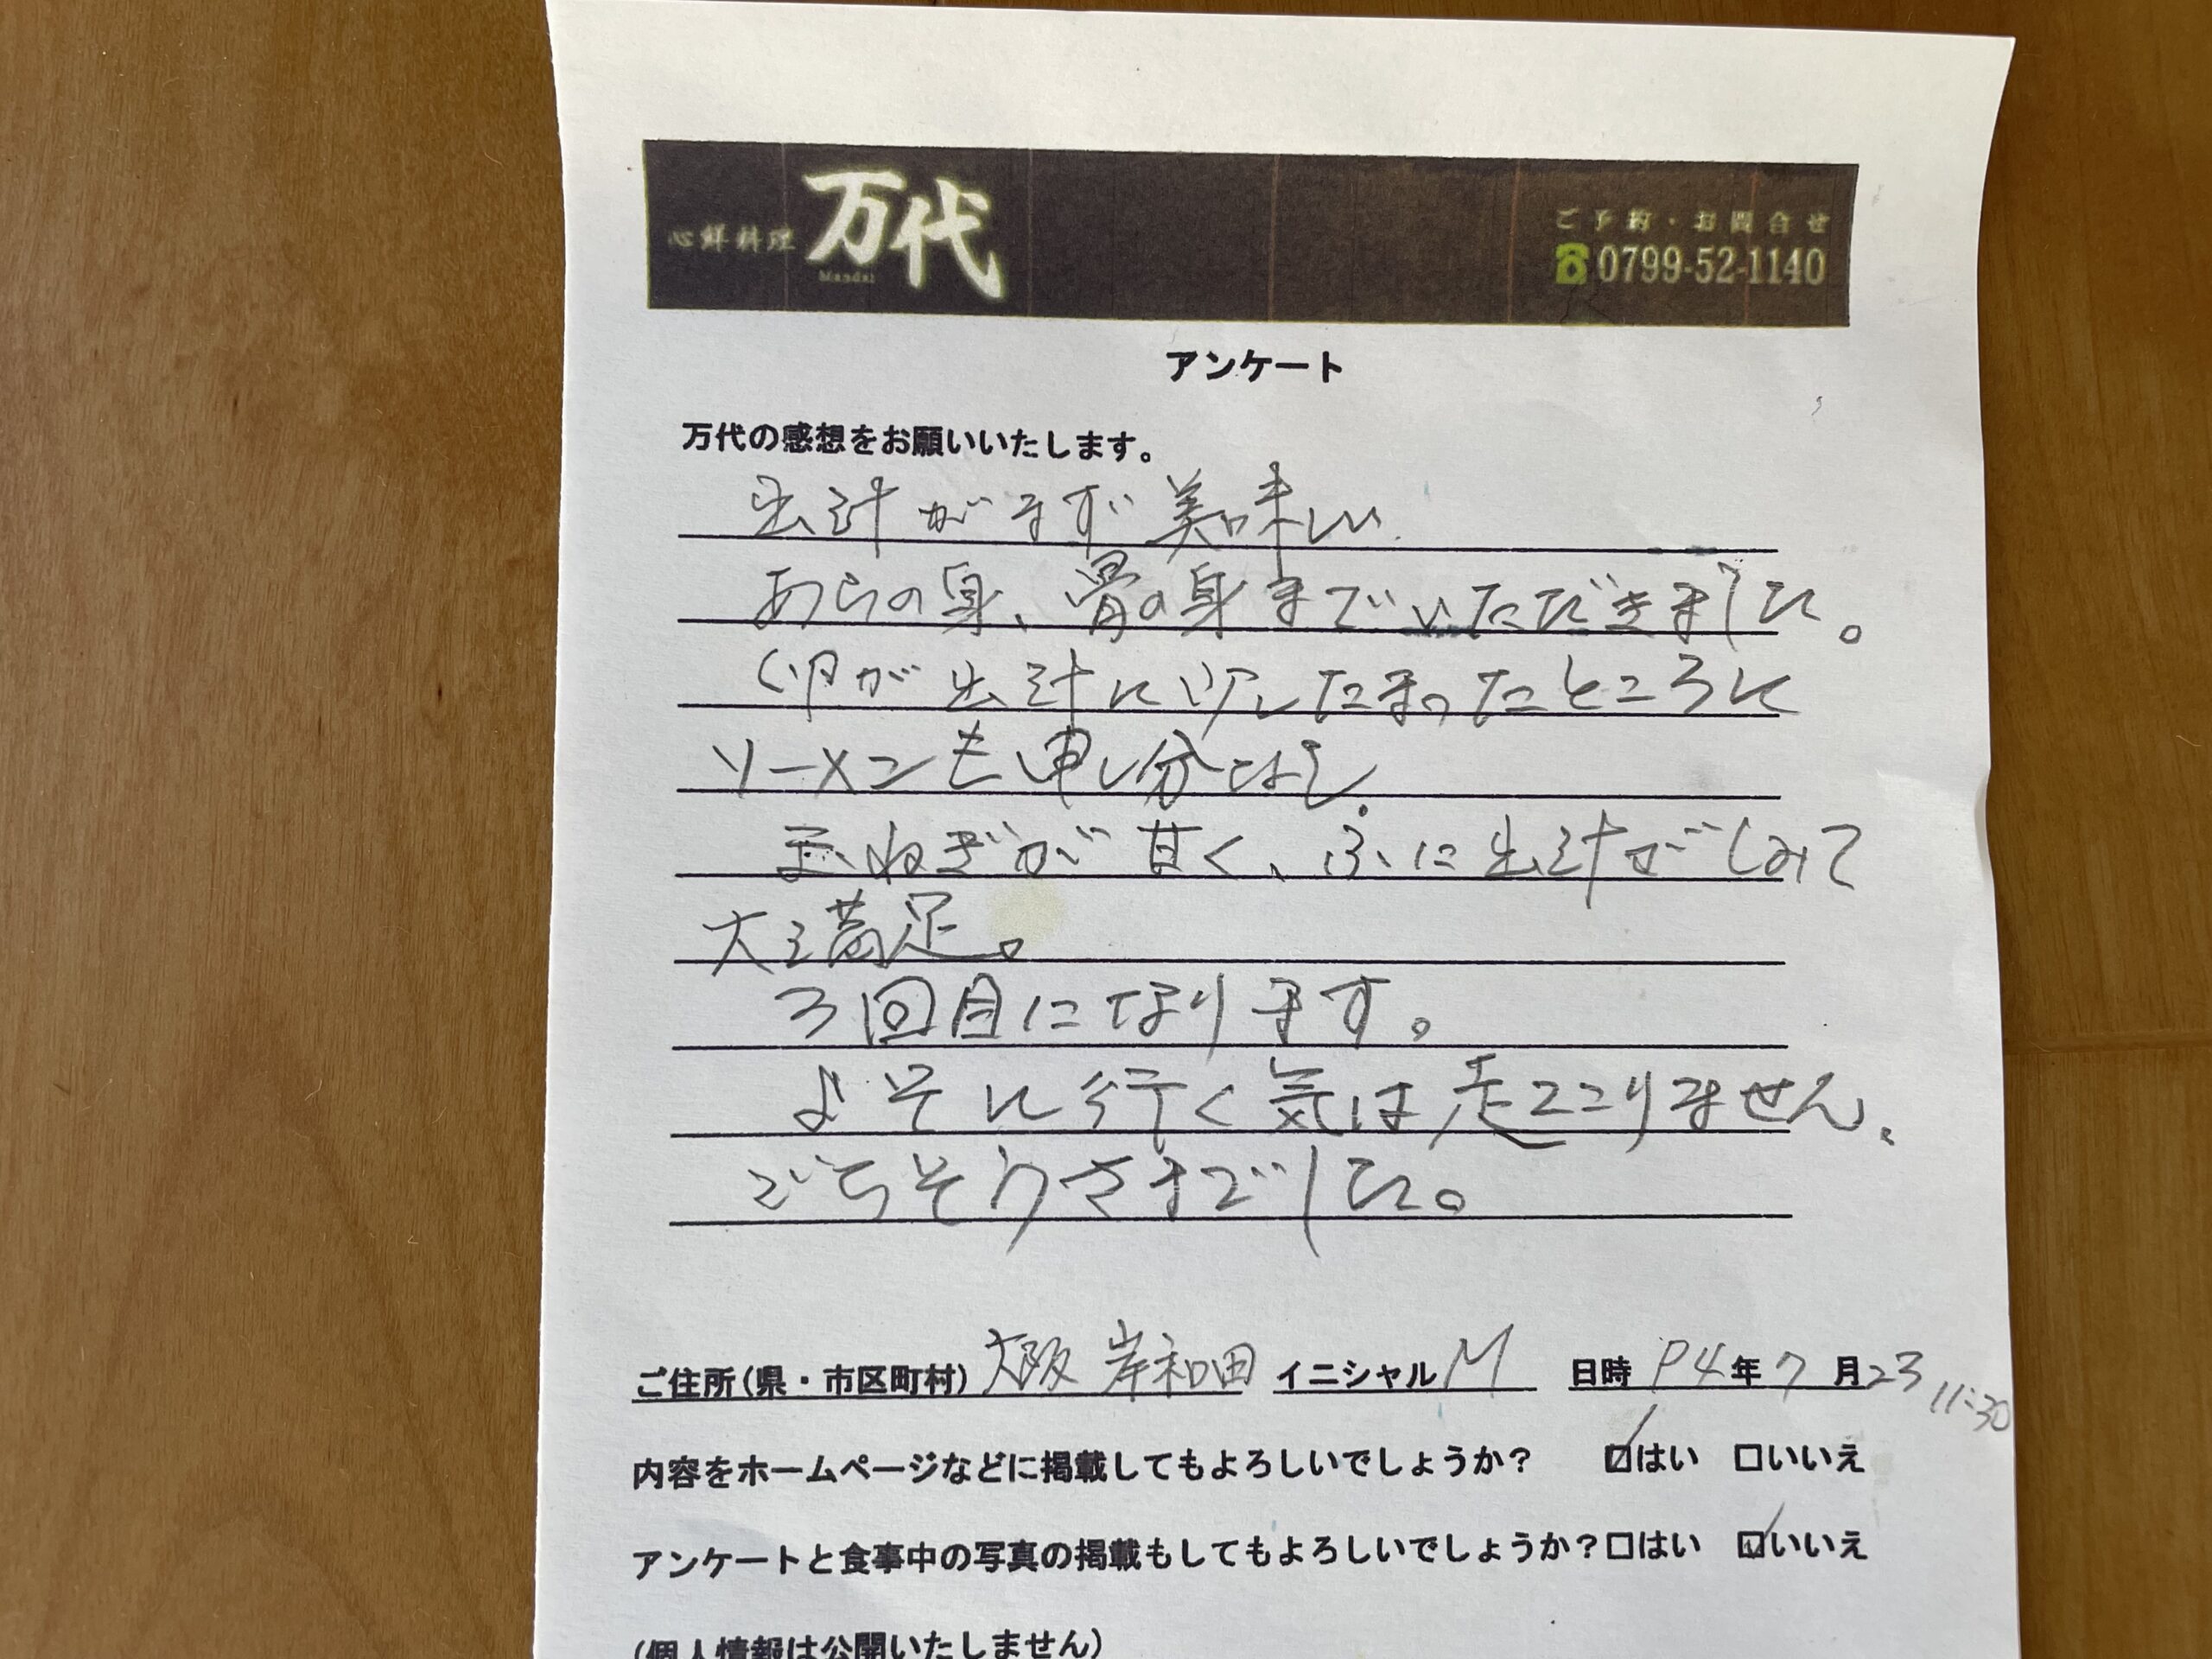 心鮮料理 万代
Mandai
ご予約・お問合せ
0799-52-1140
アンケート
万代の感想をお願いいたします。
出汁がまず美味しい.
あらの身、骨の身までいただきました。
卵が出汁に少したまったところに
ソーメンも申し分なし.
玉ねぎが甘く、ふに出汁がしみて
大満足。
3回目になります。
よそに行く気は起こりません.
ごちそうさまでした。
ご住所(県・市区町村) 大阪 岸和田 イニシャル M 日時 R4年 7月23 11:30
内容をホームページなどに掲載してもよろしいでしょうか? ☑はい □いいえ
アンケートと食事中の写真の掲載もしてもよろしいでしょうか?□はい ☑いいえ
(個人情報は公開いたしません)